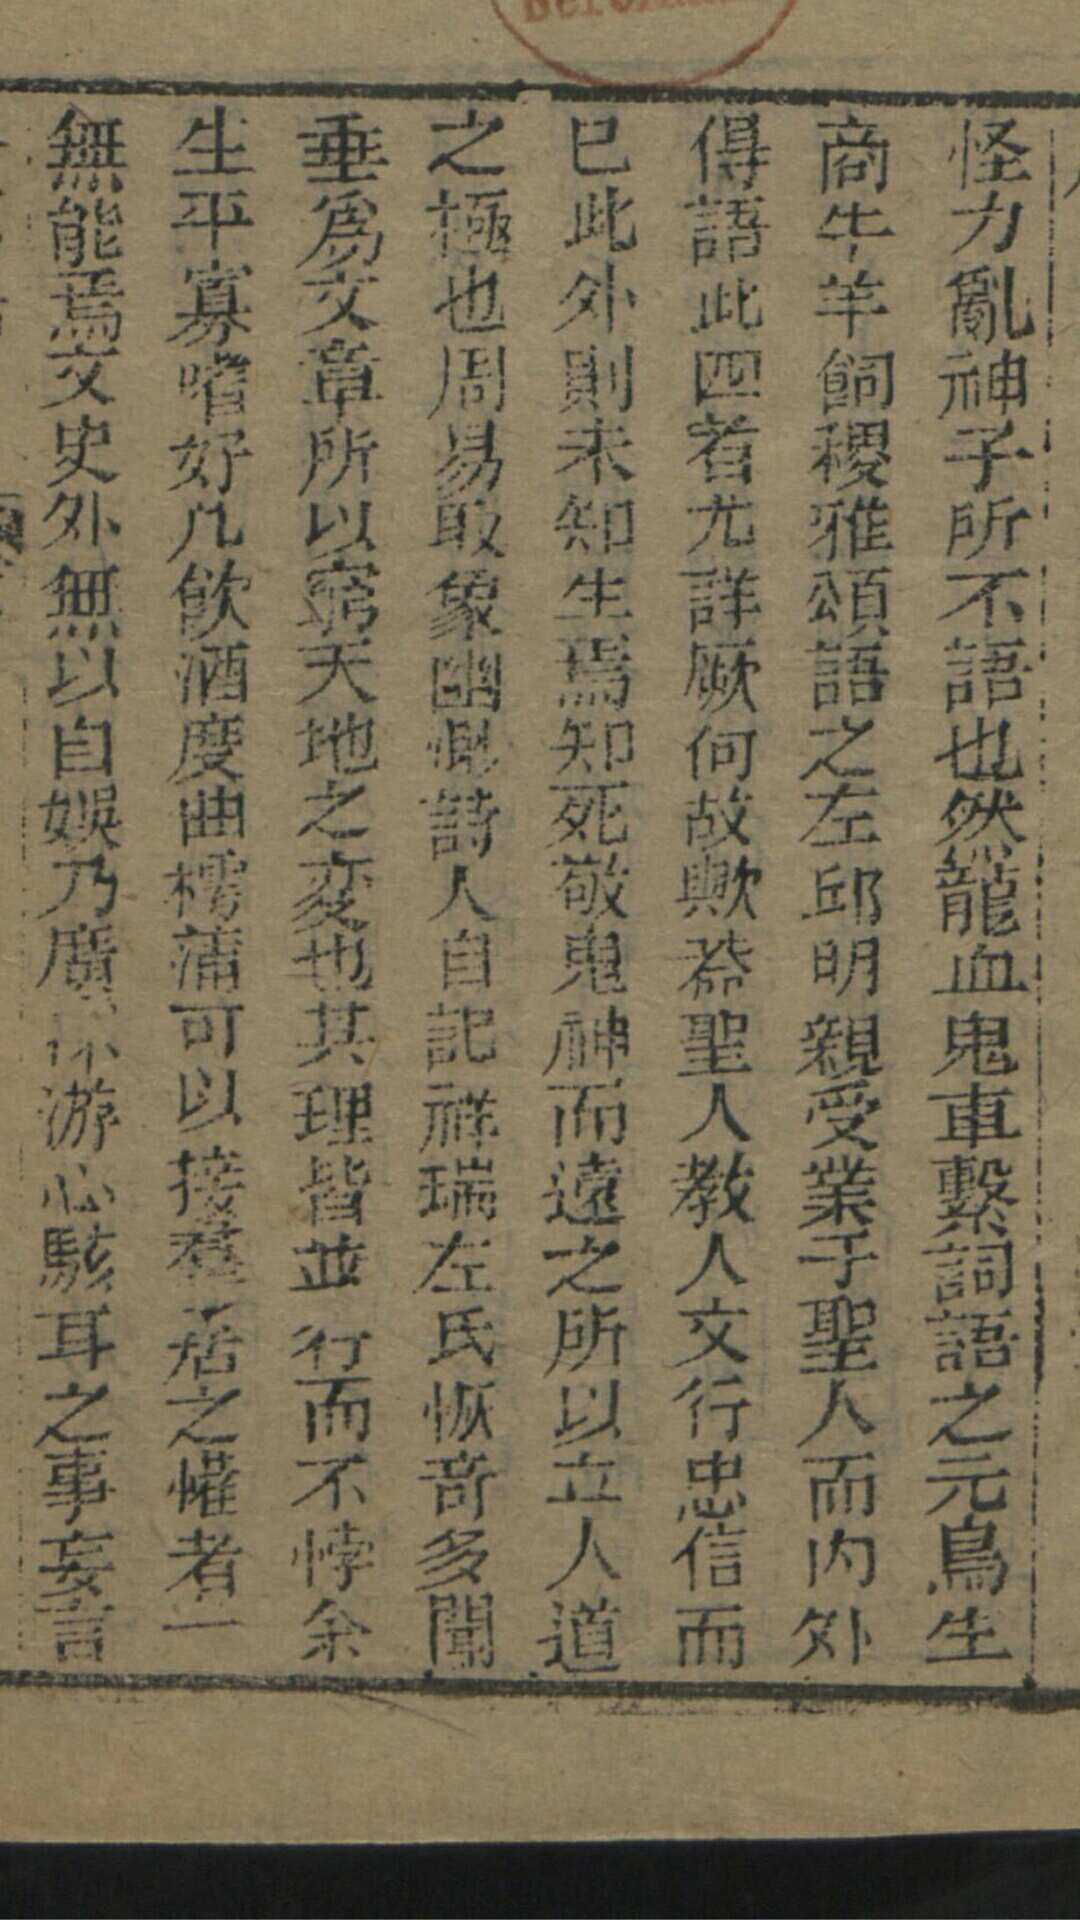 怪力亂神子所不語也然龍血鬼車繫詞語之元鳥生
商牛羊飼稷雅頌語之左邱明親受業于聖人而內外
傳語此四者尤詳厥何故歟葢聖人教人文行忠信而
已此外則未知生焉知死敬鬼神而遠之所以立人道
之極也周易取象幽愀詩人自記祥瑞左氏恢奇多聞
垂為文章所以窮天地之変也其理皆並行而不悖余
生平寡嗜好凡飲酒度曲樗蒲可以接羣居之懽者一
無能焉文史外無以自娛乃廣采游心駭耳之事妄言